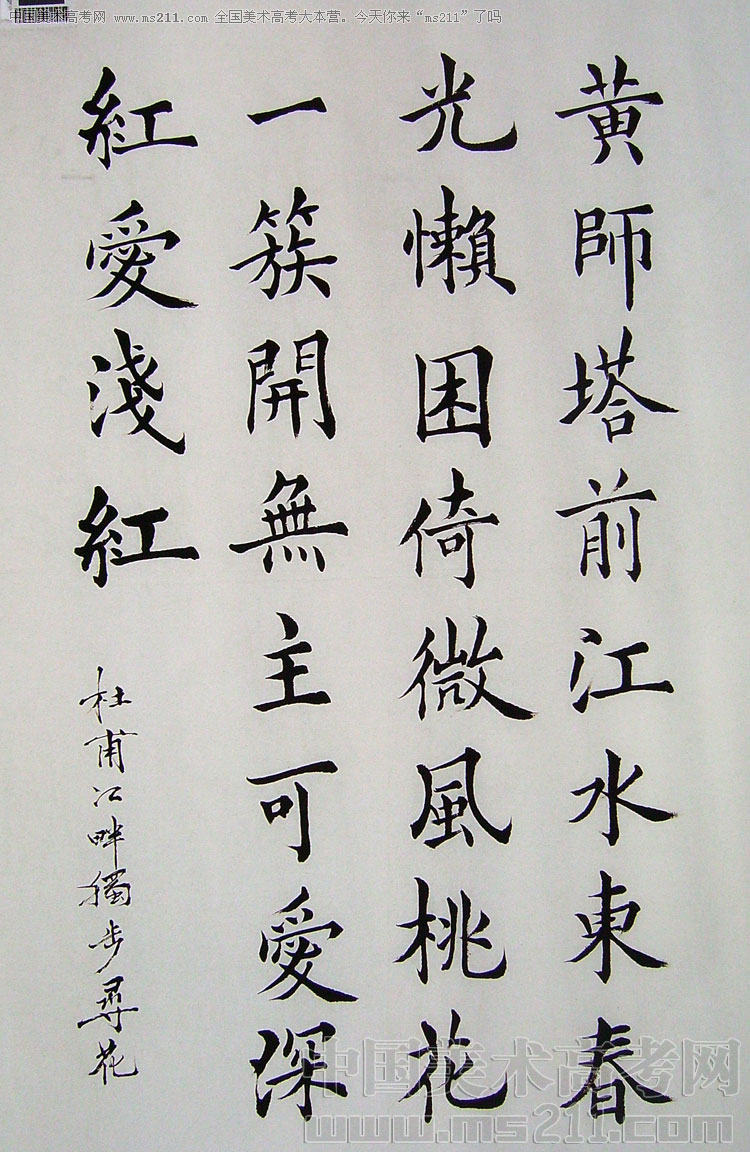 中国美术高考网 www.ms211.com 全国美术高考大本营。今天你来“ms211”了吗
黄師塔前江水東春
光懶困倚微風桃花
一簇開無主可愛深
紅愛淺紅
杜甫江畔獨步尋花
中国美术高考网
www.ms211.com